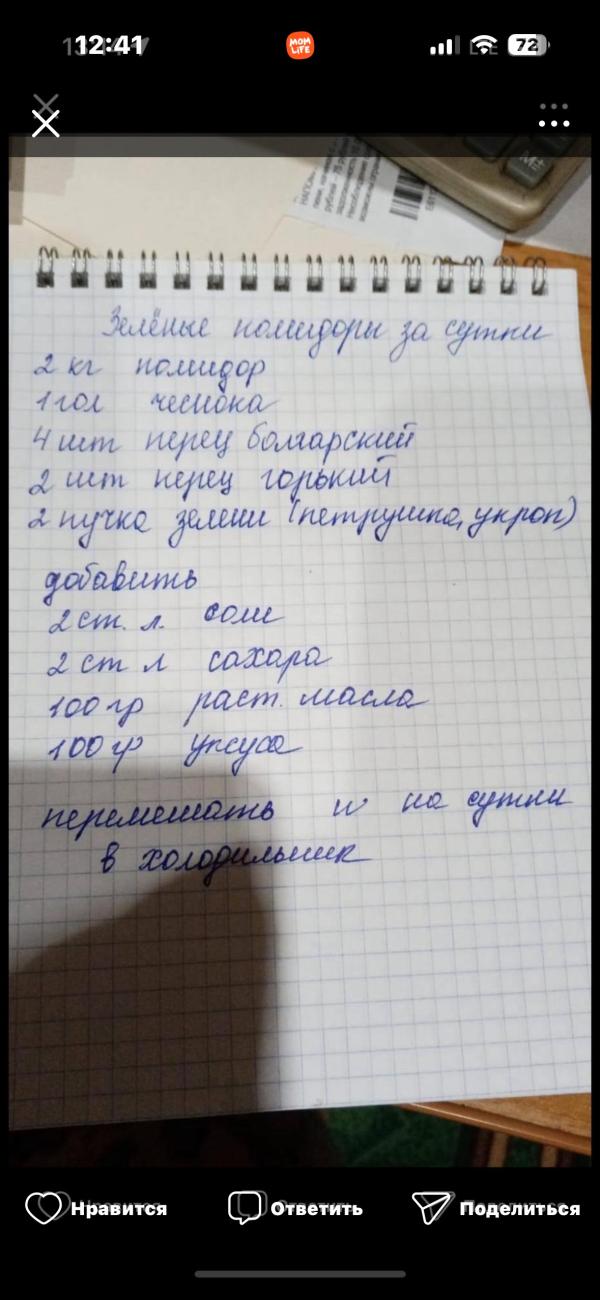 12:41
MOM LIFE
72
M+
Зелёные помидоры за сутки
2 кг помидор
1 гол чеснока
4 шт перец болгарский
2 шт перец горький
2 пучка зелени (петрушка, укроп)
добавить
2 ст. л. соли
2 ст л сахара
100 гр раст. масла
100 гр уксуса
перемешать и на сутки
в холодильник
Нравится
Ответить
Поделиться